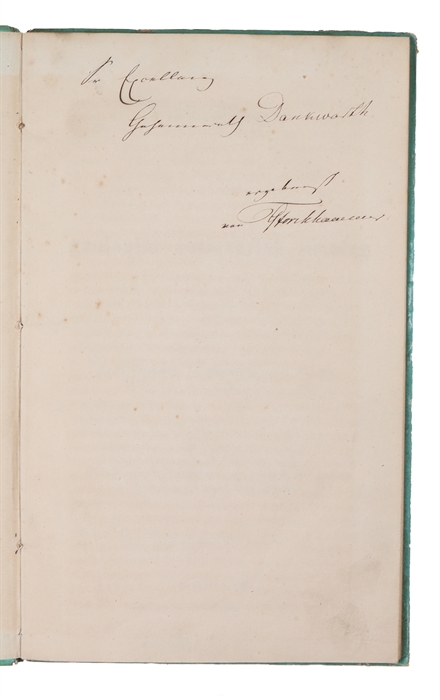 Sr Excellenz
Geheimerath Dankwarth
ergebenst
von PForchhammer